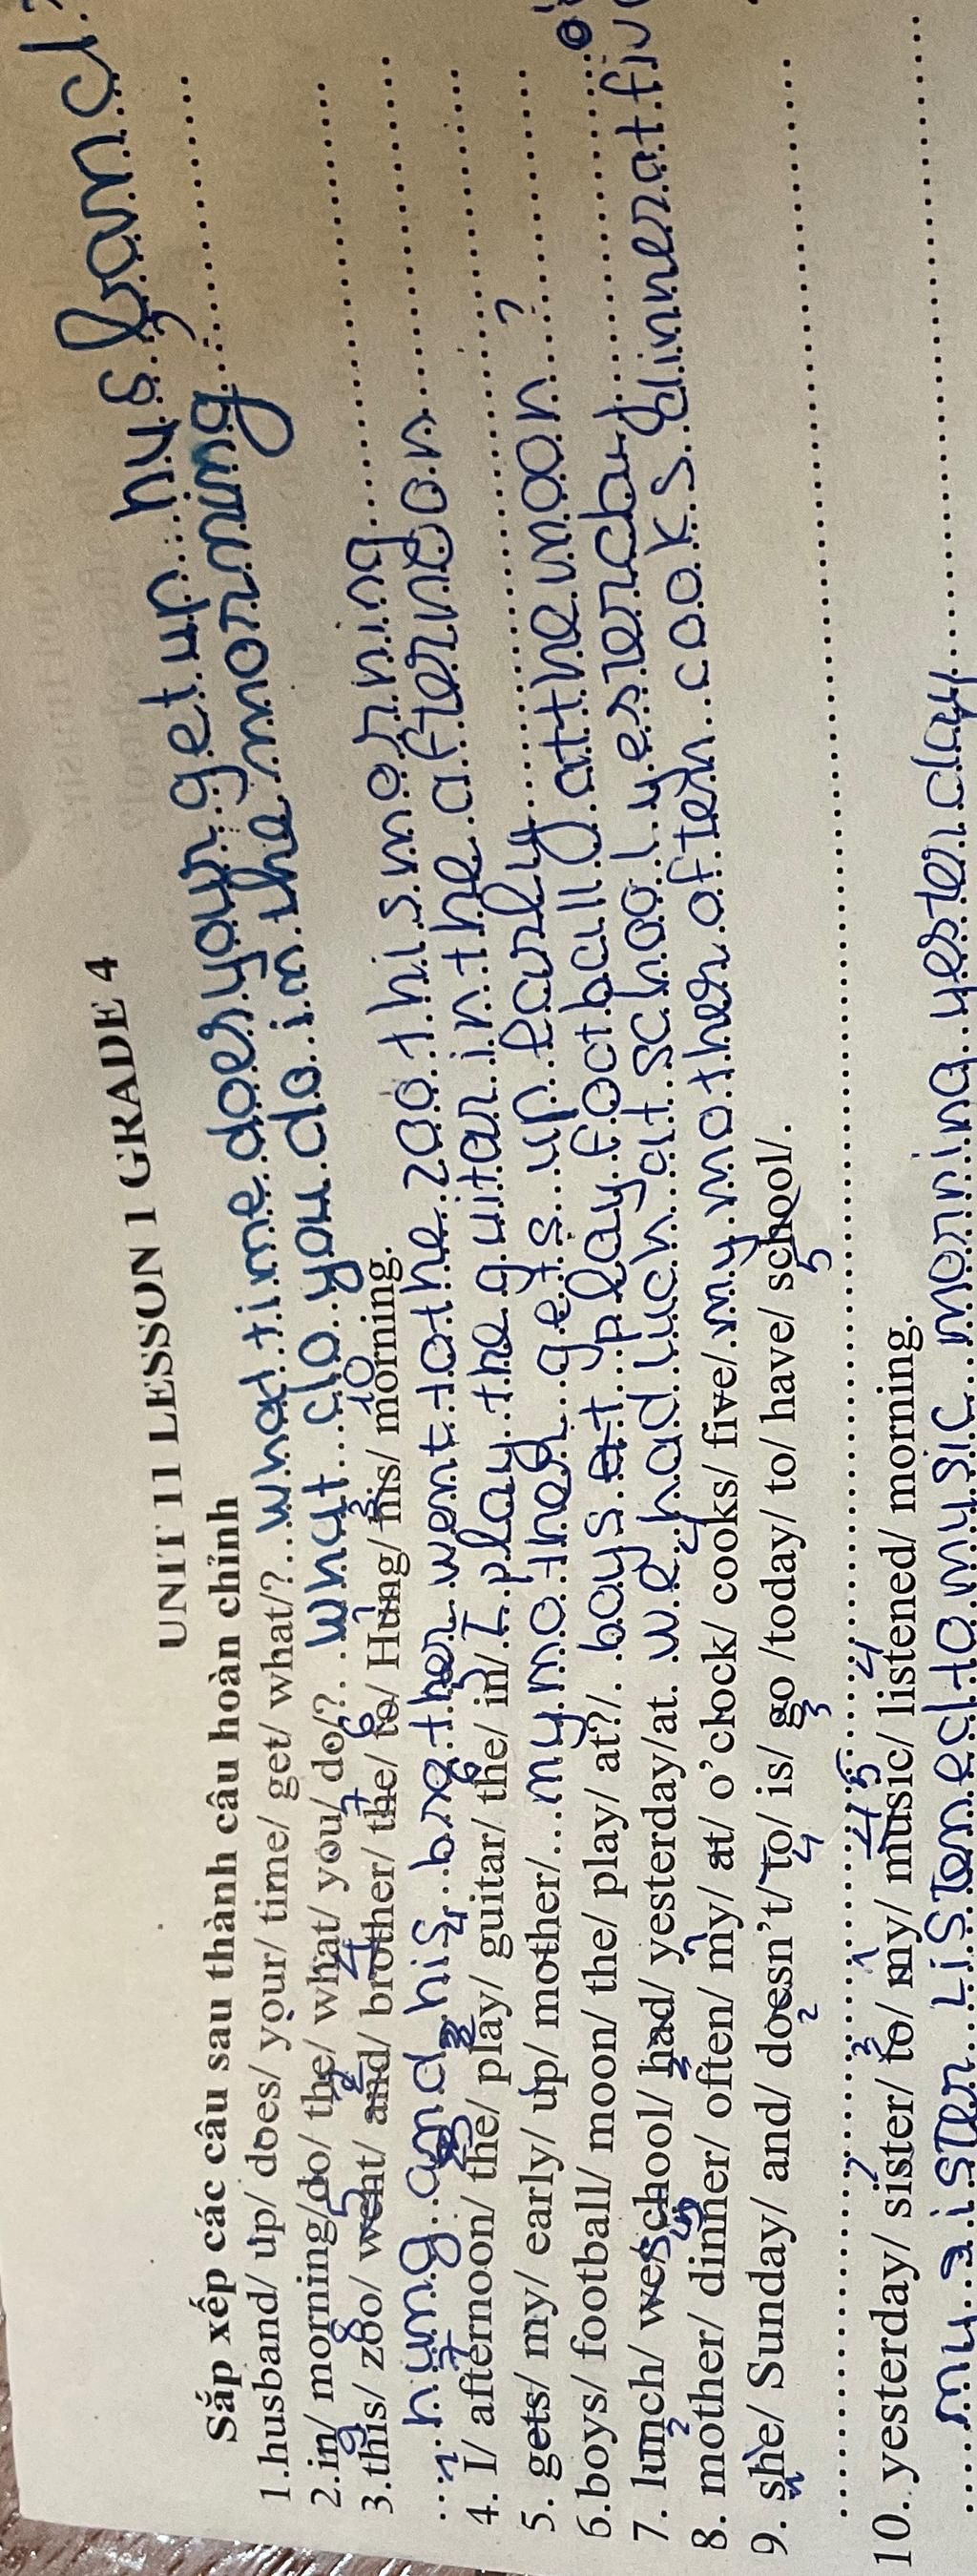 UNIT 11 LESSON 1 GRADE 4
Sắp xếp các câu sau thành câu hoàn chỉnh
1.husband/ up/ does/ your/ time/ get/ what/?...what time does your get up
2.in/ morning/do/ the/ what/ you/ do/?. what do you do in the morning
3.this/ zoo/ went/ and/ brother/ the/ to/ Hung/ his/ morning.
hung and his brother went to the zoo this morning
4. I/ afternoon/ the/ play/ guitar/ the/ in/ I play the guitar in the afternoon
5. gets/ my/ early/ up/ mother/....my mother gets up early
6.boys/ football/ moon/ the/ play/ at?/. boys play football at the moon?
7. lunch/ we/school/ had/ yesterday/at. we had lunch at school yesterday
8. mother/ dinner/ often/ my/ at/ o'clock/ cooks/ five/ my mother often cooks
9. she/ Sunday/ and/ doesn't/ to/ is/ go /today/ to/ have/ school/.
10. yesterday/ sister/ to/ my/ music/ listened/ morning.
my sister listened to music yesterday